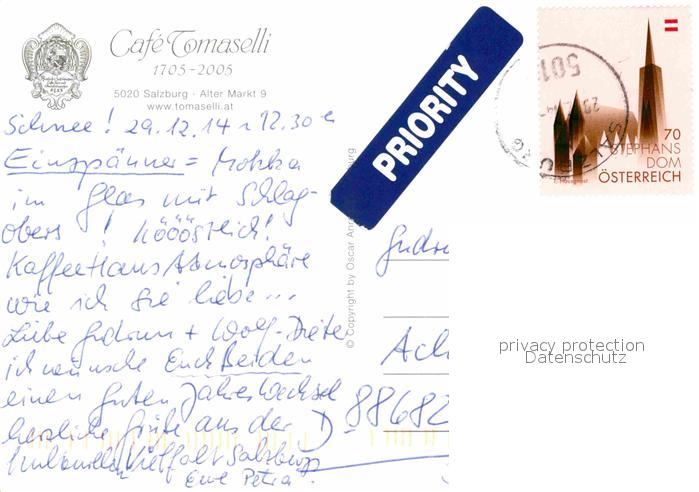 Café Tomaselli
1705-2005
5020 Salzburg · Alter Markt 9
www.tomaselli.at
Schnee! 29.12.14 ~ 12.30 e
Einspänner = Mokka
im Glas mit Schlag-
obers! Kööstlich!
Kaffeehaus Atmosphäre
wie ich sie liebe...
Liebe Gudrun + Wolf-Dieter
ich wünsche Euch Beiden
einen guten Jahreswechsel
herzliche Grüße aus der
kulturellen Vielfalt Salzburgs
Eure Petra
© Copyright by Oscar
PRIORITY
70
STEPHANS
DOM
ÖSTERREICH
501
Gudru
Ach
D-88682
privacy protection
Datenschutz